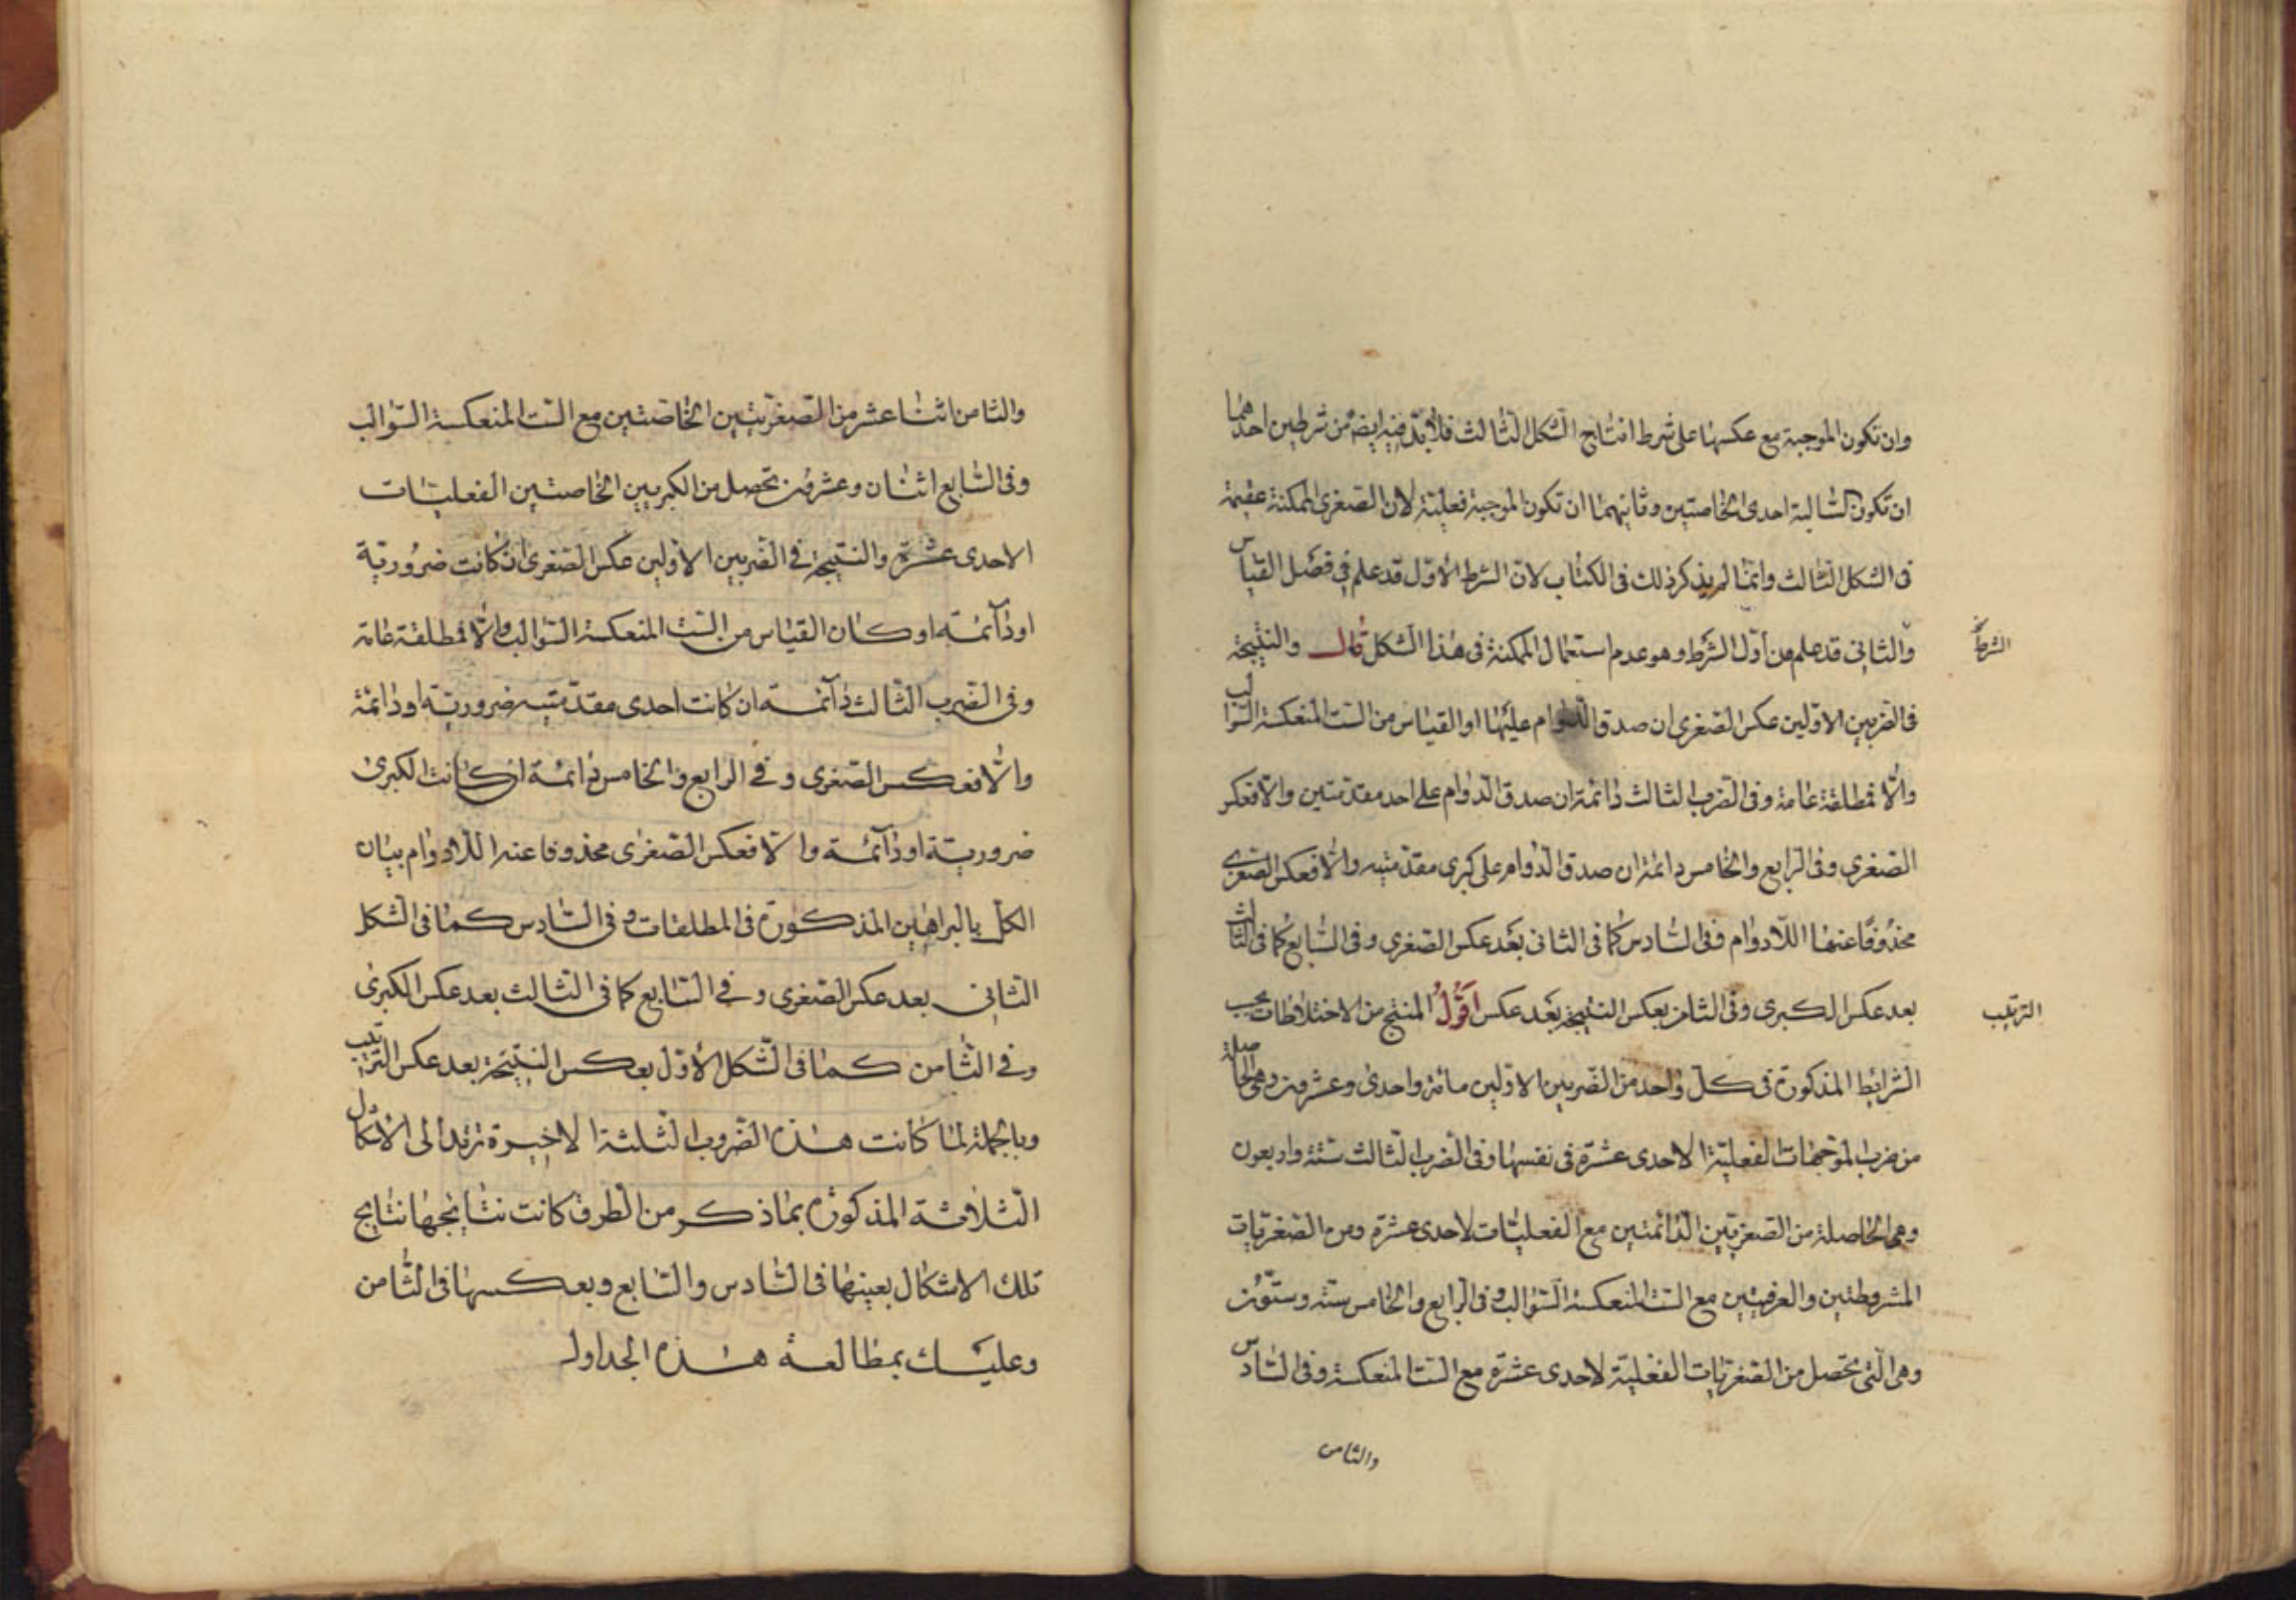 وان تكون الموجبة مع عكسها على شرط انتاج الشكل الثالث فلا بد فيه ايضا من شرطين احدهما
ان تكون السالبة احدى الخاصتين وثانيهما ان تكون الموجبة فعلية لان الصغرى الممكنة عقيمة
فى الشكل الثالث وانما لم يذكر ذلك فى الكتاب لان الشرط الاول قد علم فى فصل القياس
والثانى قد علم من اول الشرط وهو عدم استعمال الممكنة فى هذا الشكل قال والنتيجة
الشرط
فى الضربين الاولين عكس الصغرى ان صدق الدوام عليها او القياس من الست المنعكسة السوالب
والا فمطلقة عامة وفى الضرب الثالث دائمة ان صدق الدوام على احد مقدمتين والا فعكس
الصغرى وفى الرابع والخامس دائمة ان صدق الدوام على كبرى مقدمتيه والا فعكس الصغرى
محذوفا عنها اللادوام وفى السادس كما فى الثانى بعد عكس الصغرى وفى السابع كما فى الثالث
بعد عكس الكبرى وفى الثامن بعكس النتيجة بعد عكس اقول المنتج من الاختلاطات بحسب
الترتيب
الشرائط المذكورة فى كل واحد من الضربين الاولين مائة واحدى وعشرون وهى الحاصلة
من ضرب الموجهات الفعلية الاحدى عشرة فى نفسها وفى الضرب الثالث ستة واربعون
وهى الحاصلة من الصغريين الدائمتين مع الفعليات الاحدى عشرة ومن الصغريات
المشروطتين والعرفيتين مع الست المنعكسة السوالب وفى الرابع والخامس ستة وستون
وهى التى تحصل من الصغريات الفعلية الاحدى عشرة مع الست المنعكسة وفى السادس
والثامن
والثامن اثنا عشر من الصغريين الخاصتين مع الست المنعكسة السوالب
وفى السابع اثنان وعشرون تحصل من الكبريين الخاصتين الفعليات
الاحدى عشرة والنتيجة فى الضربين الاولين عكس الصغرى ان كانت ضرورية
او دآئمة او كان القياس من الست المنعكسة السوالب والا فمطلقة عامة
وفى الضرب الثالث دآئمة ان كانت احدى مقدمتيه ضرورية او دائمة
والا فعكس الصغرى وفى الرابع والخامس دائمة ان كانت الكبرى
ضرورية او دآئمة والا فعكس الصغرى محذوفا عنه اللادوام بيان
الكل بالبراهين المذكورة فى المطلقات وفى السادس كما فى الشكل
الثانى بعد عكس الصغرى وفى السابع كما فى الثالث بعد عكس الكبرى
وفى الثامن كما فى الشكل الاول بعكس النتيجة بعد عكس الترتيب
وبالجملة لما كانت هذه الضروب الثلثة الاخيرة ترتد الى الاشكال
الثلاثة المذكورة بما ذكر من الطرق كانت نتايجها نتايج
تلك الاشكال بعينها فى السادس والسابع وبعكسها فى الثامن
وعليك بمطالعة هذه الجداول